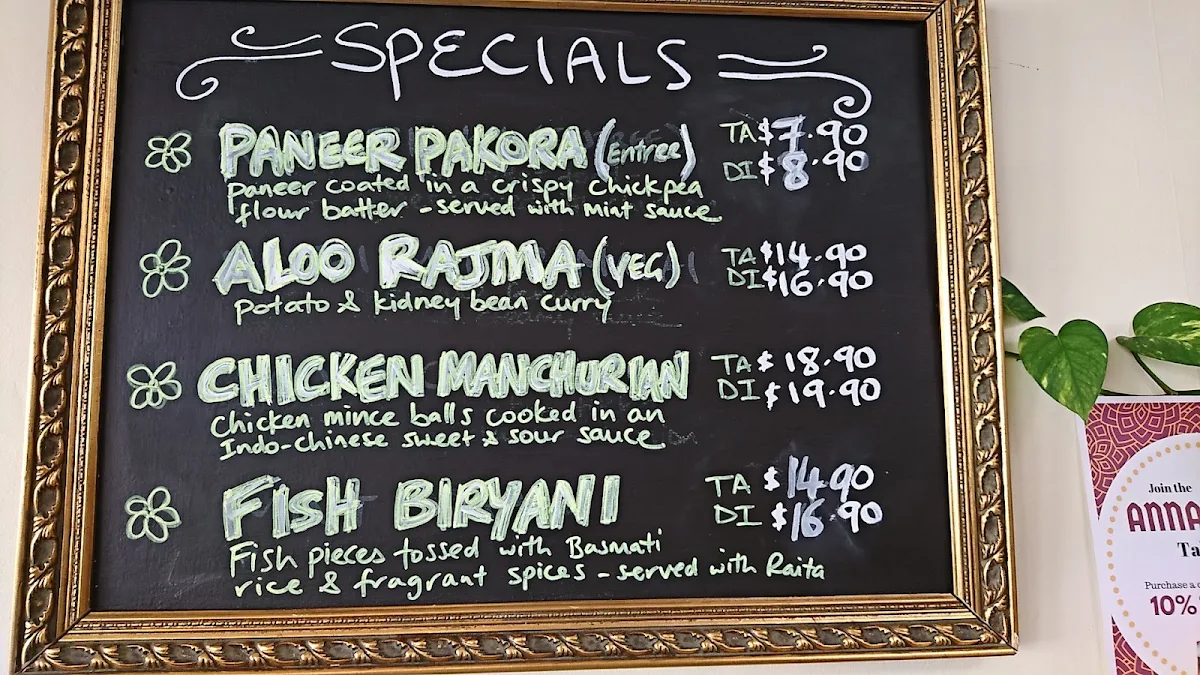 SPECIALS
PANEER PAKORA (Entree) TA $7.90
DI $8.90
Paneer coated in a crispy chickpea
flour batter - served with Mint sauce
ALOO RAJMA (VEG) TA $14.90
DI $16.90
Potato & kidney bean curry
CHICKEN MANCHURIAN TA $18.90
DI $19.90
Chicken mince balls cooked in an
Indo-chinese sweet & sour sauce
FISH BIRYANI TA $14.90
DI $16.90
Fish pieces tossed with Basmati
rice & fragrant spices - served with Raita
Join the
ANNA
Ta
Purchase a
10%